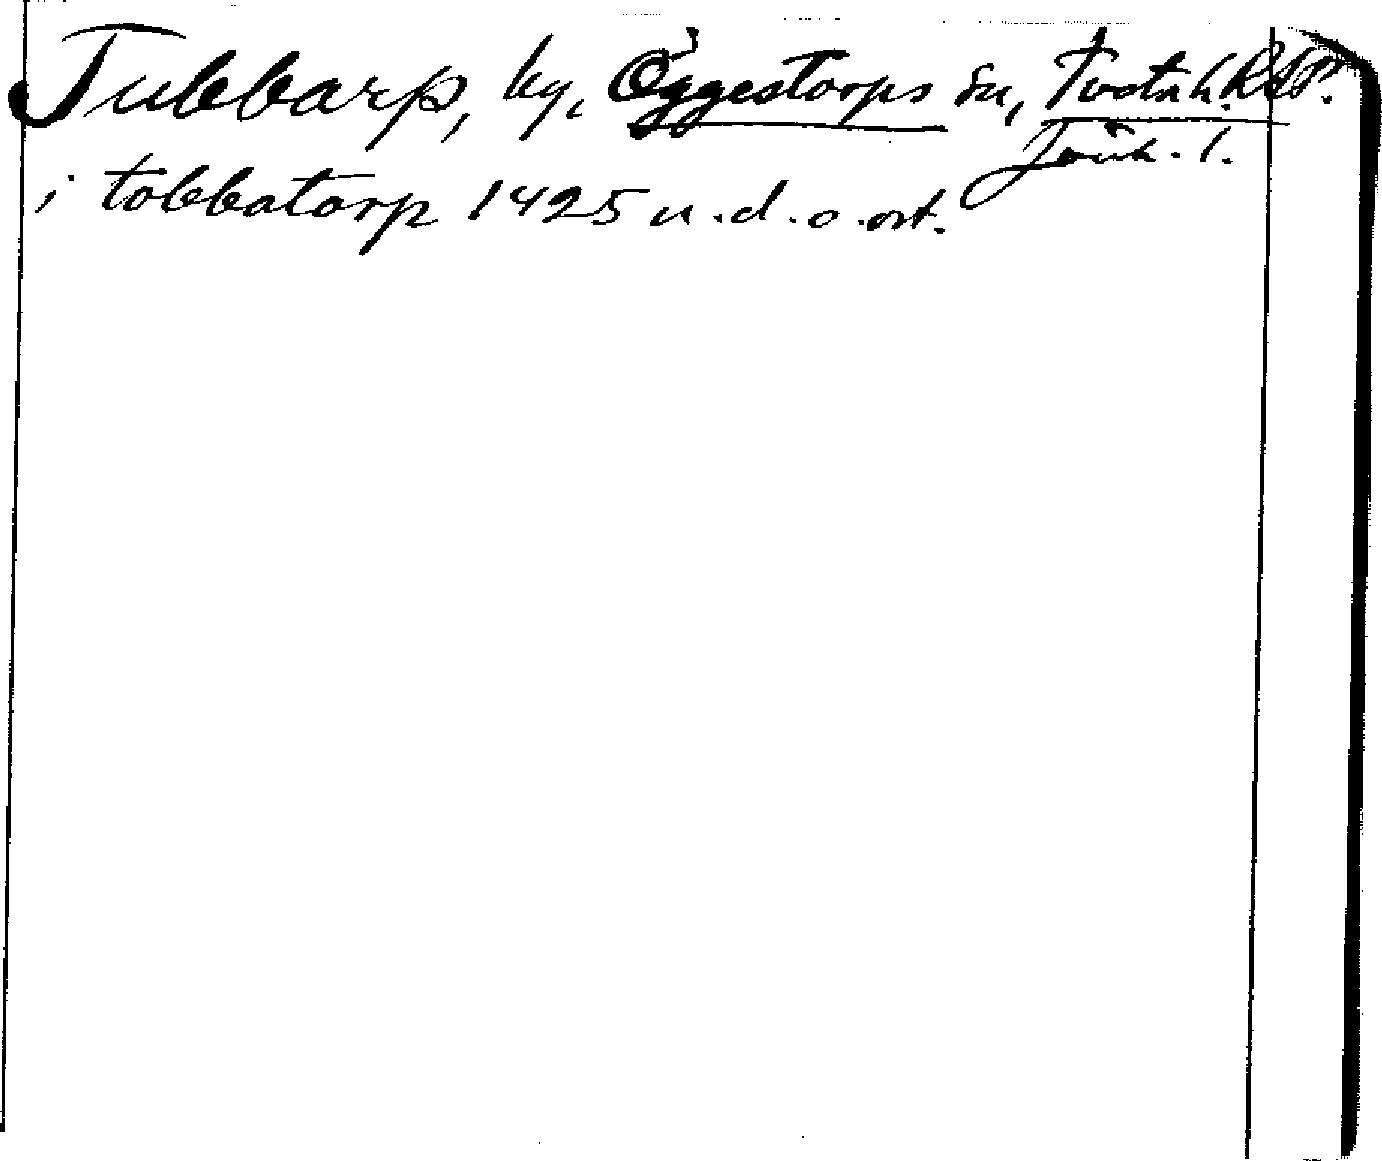 Tubbarp, by, Öggestorps sn, Tveta h. RAP.
Jönk. l.
i tobbatorp 1425 u.d.o.ort.